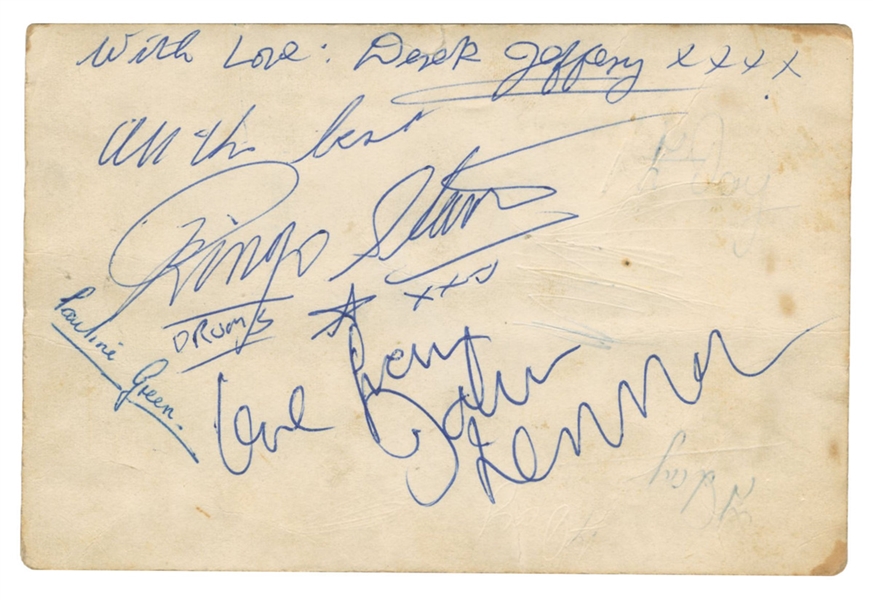 With Love: Derek Jeffery xxxx
All the best
Ringo Starr
DRUMS
xxx
Pauline Green.
love from
John
Lennon